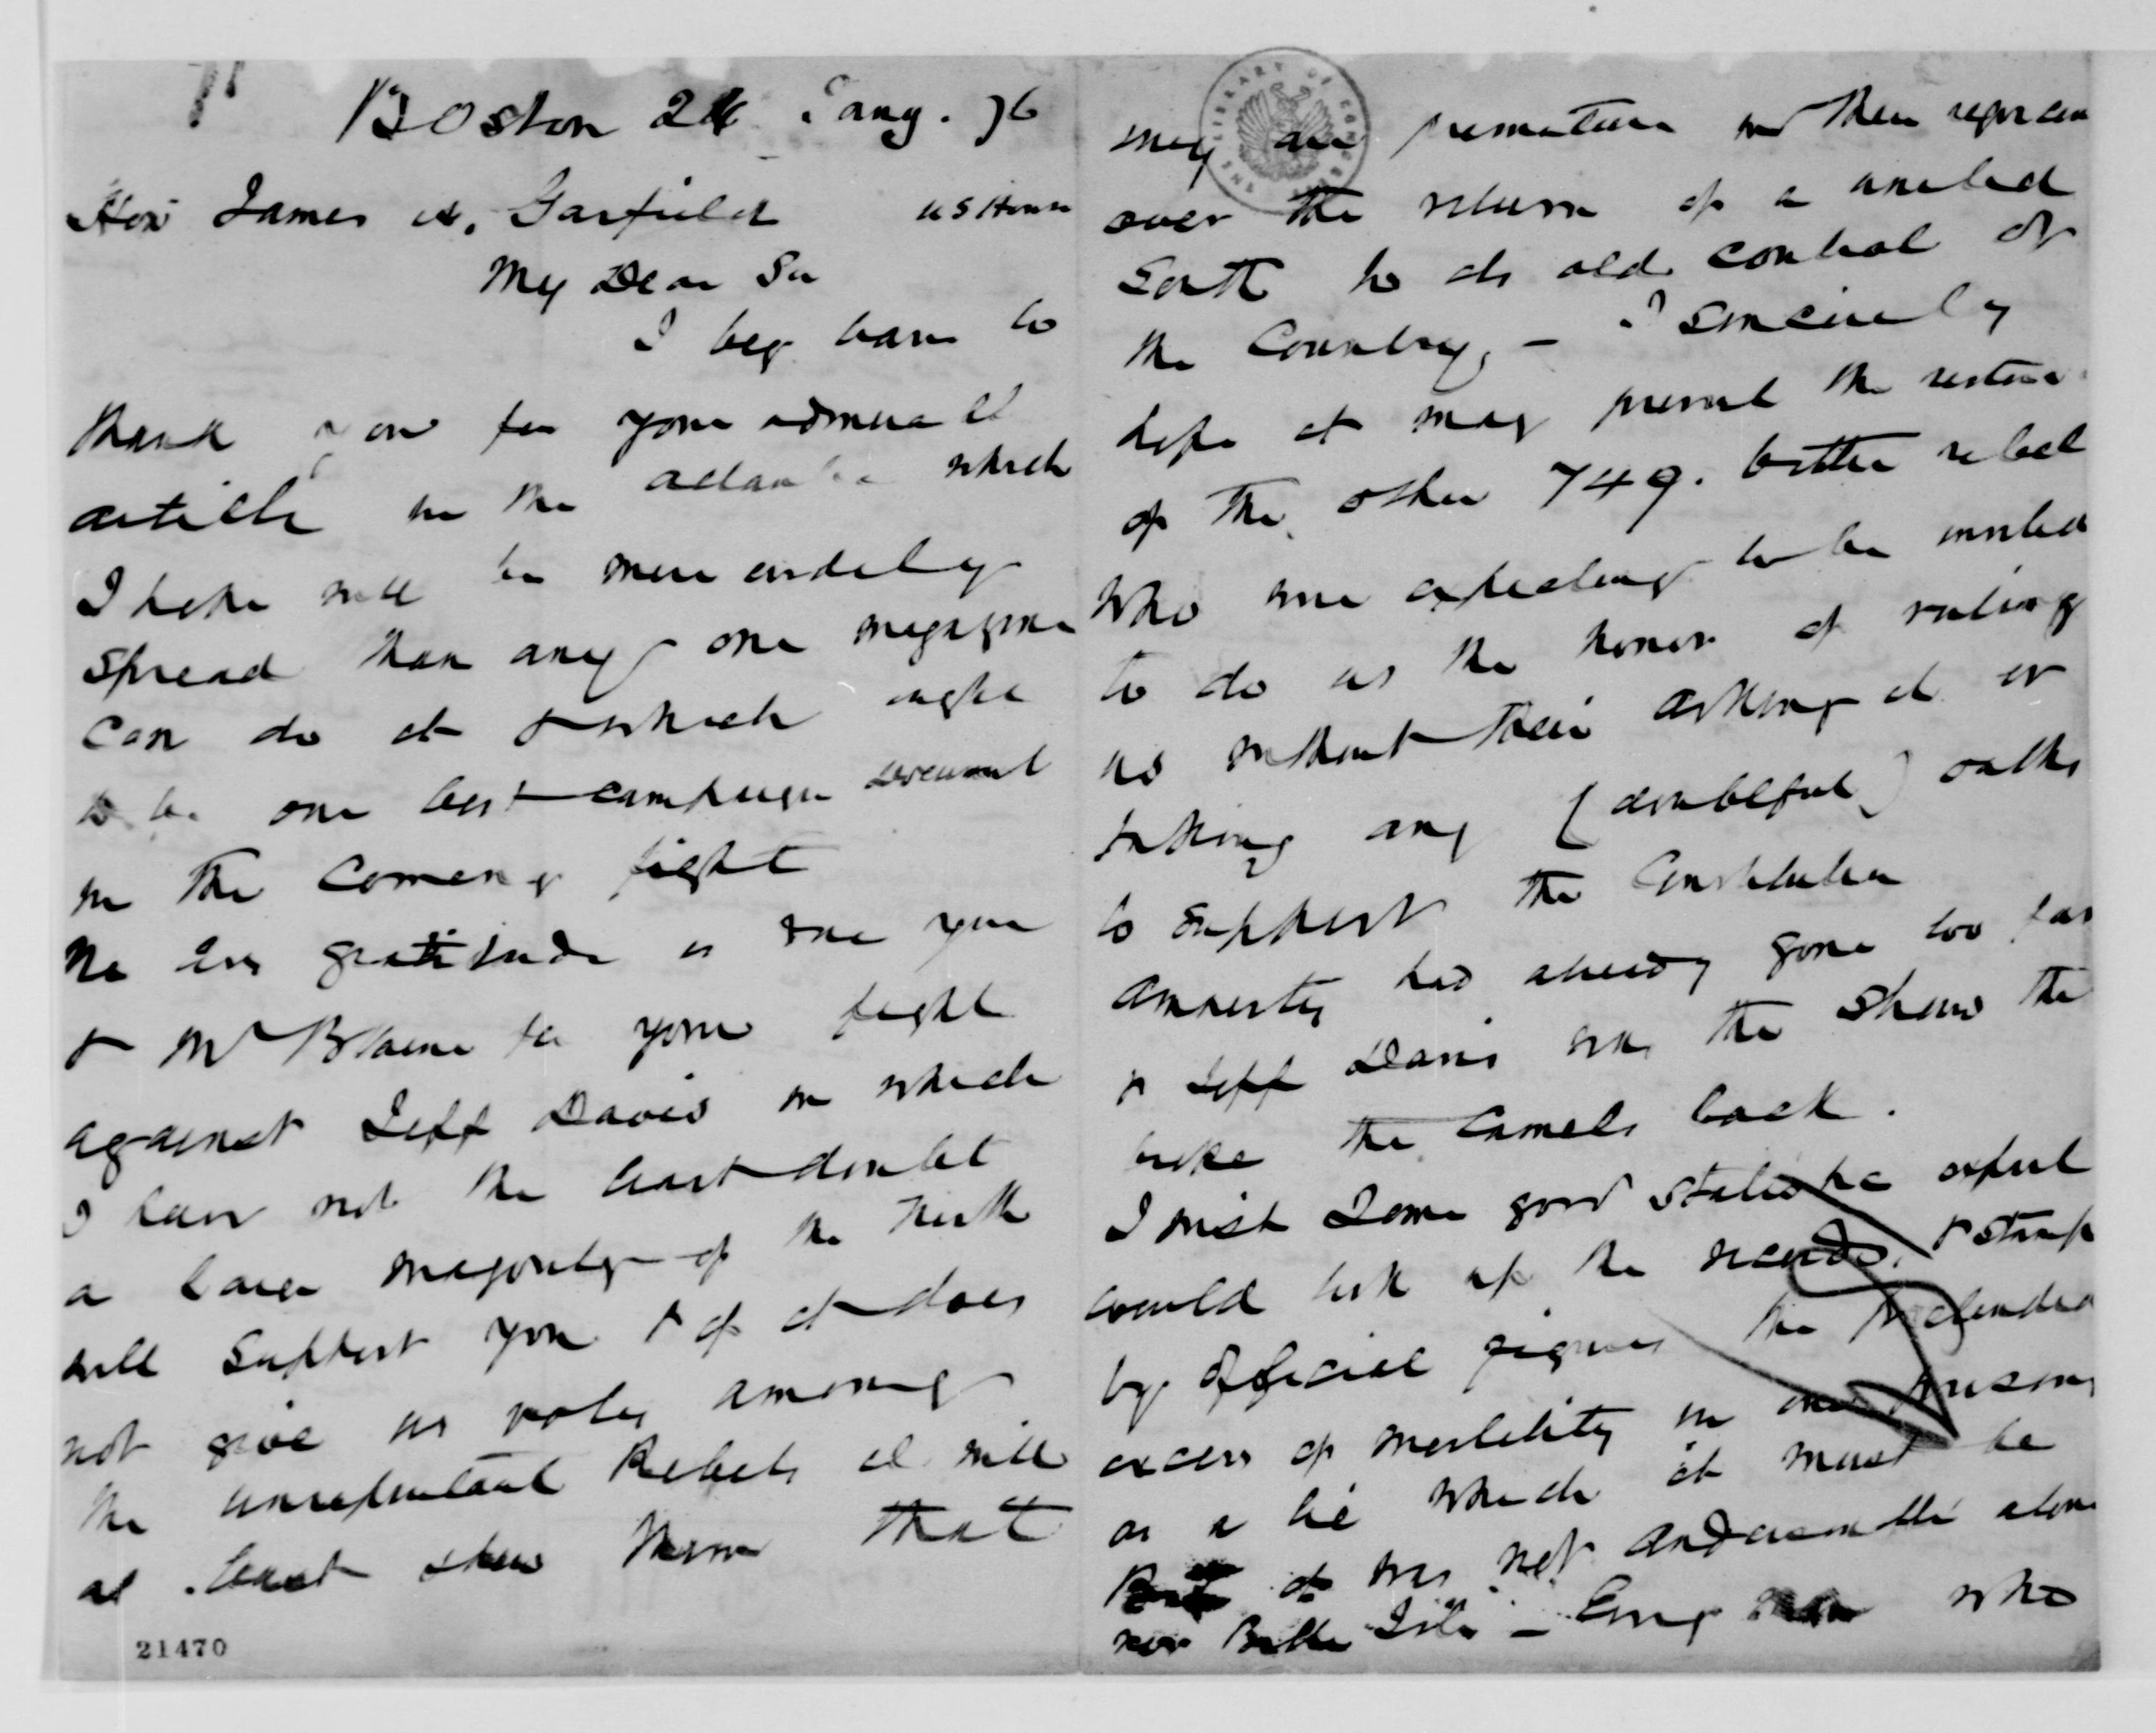 Boston 24 Jany. 76
Hon James A. Garfield US House
My Dear Sir
I beg leave to
thank you for your admirable
article in the Atlantic which
I hope will be more widely
spread than any one magazine
can do it & which ought
to be our best campaign document
in the coming fight
No less gratitude is due you
& Mr Blaine for your fight
against Jeff Davis in which
I have not the least doubt
a large majority of the North
will support you & if it does
not give us votes among
the unrepentant Rebels it will
at least show them that
they are premature in their rejoicing
over the return of a united
South to its old control of
the Country, – I sincerely
hope it may prevent the return
of the other 749. bitter rebels
who are expecting to be invited
to do us the honor of ruling
us without their asking it or
taking any (doubtful) oaths
to support the Constitution
Amnesty had already gone too far
& Jeff Davis was the straw that
broke the Camels back.
I wish some good statistic expert
would look up the records, & stamp
by official figures the pretended
excess of mortality in our prisons
as a lie which it must be
But it was not Andersonville alone
nor Belle Isle – Every man who
21470
THE LIBRARY OF CONGRESS